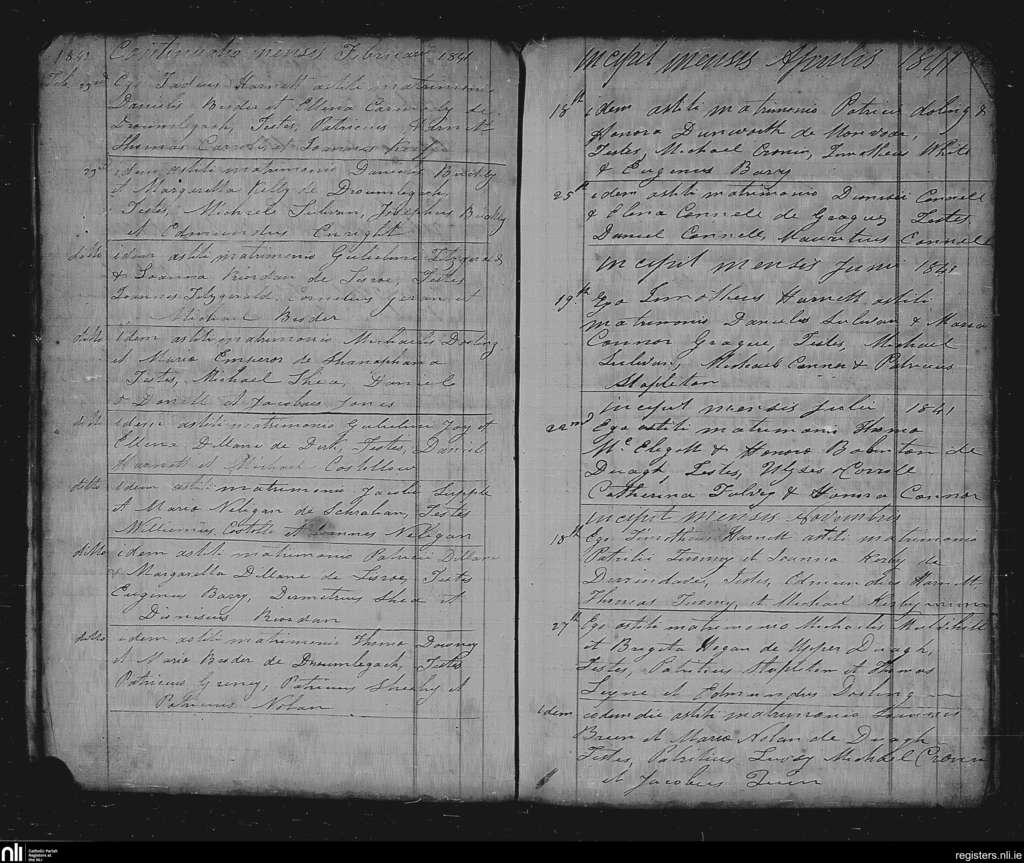 1841 Continuatio mensis Februarii 1841
Feb. 23rd Ego Tadeus Harnett astiti matrimonio
Danielis Buder et Ellena Connerly de
Droumlegach, Testes, Patricius Harnett
Thomas Carroll et Joannes
23rd idem astiti matrimonio Danielis Buckley
et Margaretta Kelly de Droumlegach,
Testes, Michaele Sulivan, Josephus Buckley
et Edmundus Enright
ditto idem astiti matrimonio Gulielmi Fitzgerald
& Joanna Riordan de Lisroe, Testes
Joannes Fitzgerald, Cornelius Geran et
Michael Buder
ditto idem astiti matrimonio Michaelis Dooling
et Maria Emperor de Shanaphana
Testes, Michael Shea, Daniel
& Daniell et Jacobus Jones
ditto idem astiti matrimonio Gulielmi Joy et
Ellena Dillane de Derk, Testes, Daniel
Harnett et Michael Costellow
ditto idem astiti matrimonio Jacobi Supple
et Maria Neligan de Schraban, Testes
Williamus Costello et Joannes Neligan
ditto idem astiti matrimonio Patricii Dillane
& Margaretta Dillane de Lisroe, Testes
Eugenius Barry, Demetrius Shea et
Dionisius Riordan
ditto idem astiti matrimonio Thoma Downey
et Maria Buder de Droumlegach, Testes
Patricius Greney, Patricius Sheehy et
Patricius Nolan
Incepit mensis Aprilis 1841
18th idem astiti matrimonio Patricii doling &
Honora Dunworth de Monvoae,
Testes, Michael Cronin, Timotheus White
& Eugenius Barry
25th idem astiti matrimonio Dionisii Connell
& Elena Connell de Graguey Testes
Daniel Connell, Mauritius Connell
Incepit mensis Junii 1841
19th Ego Timotheus Harnett astiti
matrimonio Danielis Sulivan & Maria
Connor Grague, Testes, Michael
Sulivan, Michael Connor & Patricius
Stapleton
Incepit mensis Julii 1841
22nd Ego astiti matrimonio Thoma
McElegott & Honora Babinton de
Duagh, Testes, Ulyses Corrole
Catherina Falvey & Honora Connor
Incepit Mensis Novembris
18th Ego Timotheus Harnett astiti matrimonio
Patricii Twomey et Joanna Kirby de
Derrindadei, Testes, Edmundus Harnett,
Thomas Twomy, et Michael Kirby
27th Ego astiti matrimonio Michaelis Mulvihill
et Brigita Hogan de Upper Duagh,
Testes, Patritius Stapleton et Thomas
Leyne et Edmundus Dooling
idem eodem die astiti matrimonio
Breen et Maria Nolan de Duagh
Testes, Patritius Leary Michael Cronin
et Jacobus Quin
nli Catholic Parish
Registers at
the NLI
registers.nli.ie